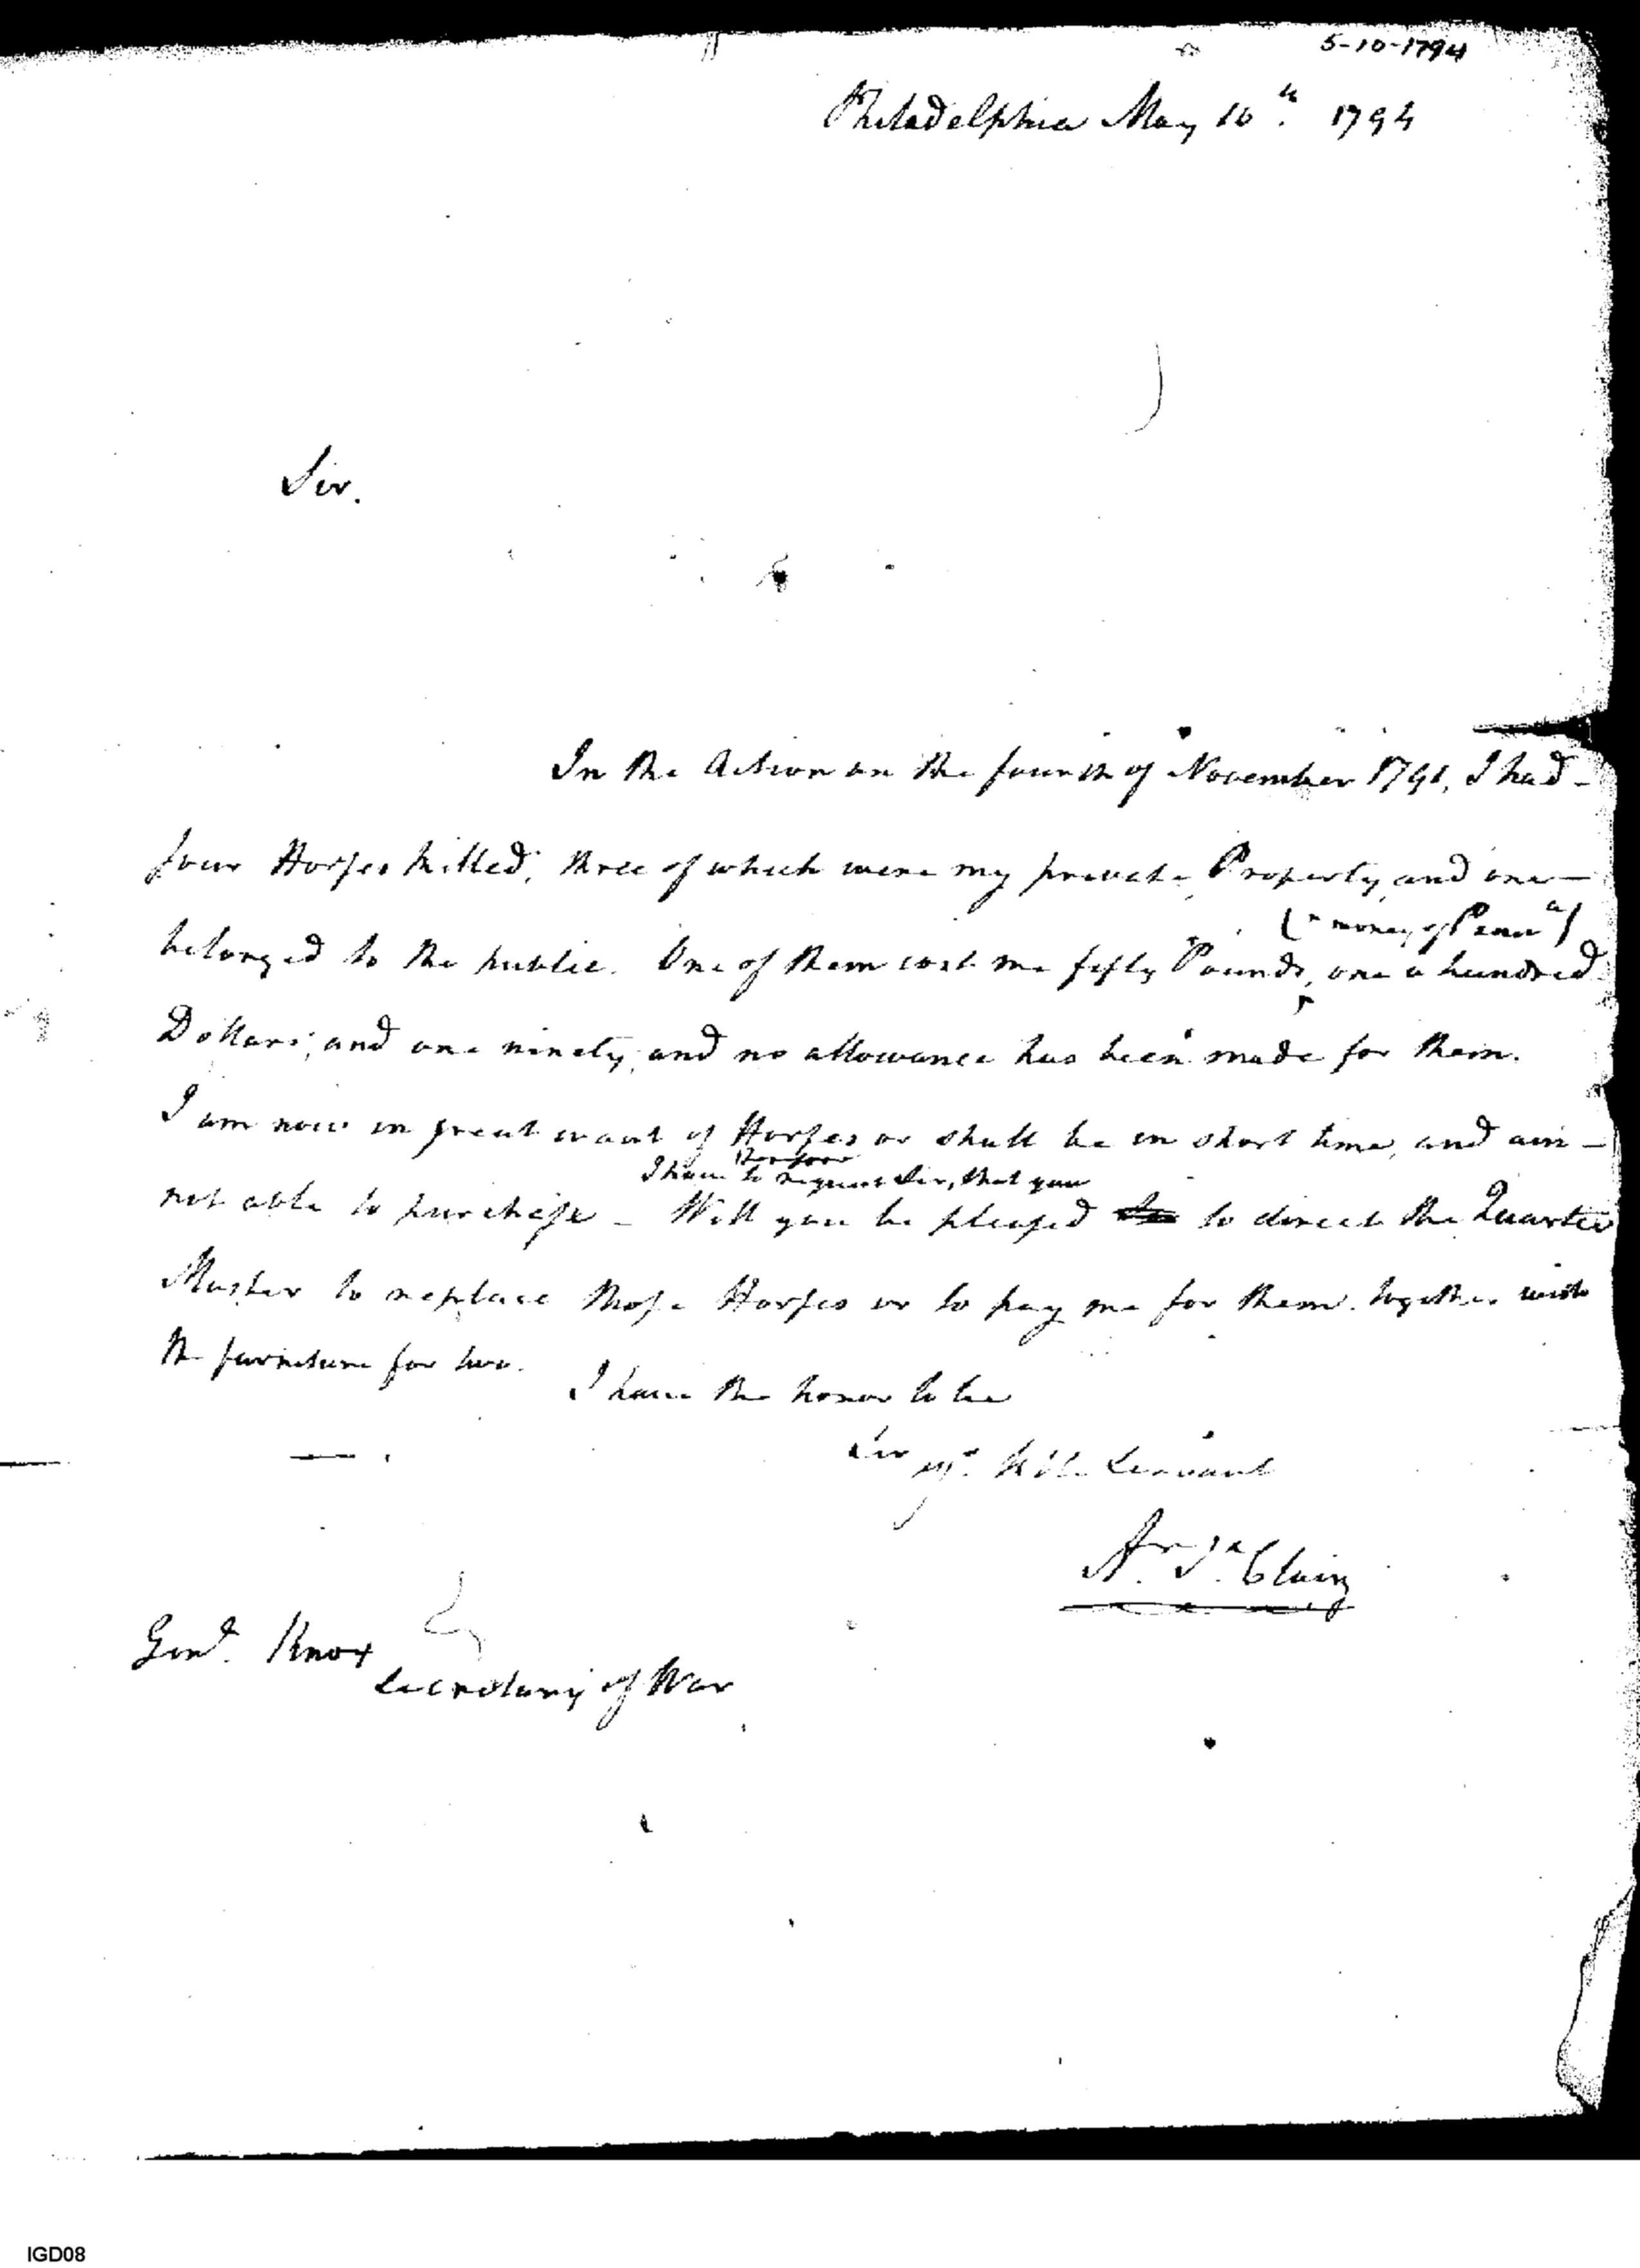 5-10-1794
Philadelphia May 10th. 1794
Sir.
In the Action on the fourth of November 1791, I had
four Horses killed, three of which were my private Property and one
(in money of Penna)
belonged to the public. One of them cost me fifty Pounds, one a hundred
Dollars, and one ninety, and no allowance has been made for them.
I am now in great want of Horses or shall be in short time, and am
therefore
I have to request Sir, that you
not able to purchase – Will you be pleased to direct the Quarter
Master to replace those Horses or to pay me for them together with
the furniture for two.
I have the honor to be
Sir
yr. hble. Servant
Ar. St. Clair
Genl. Knox
Secretary of War
IGD08